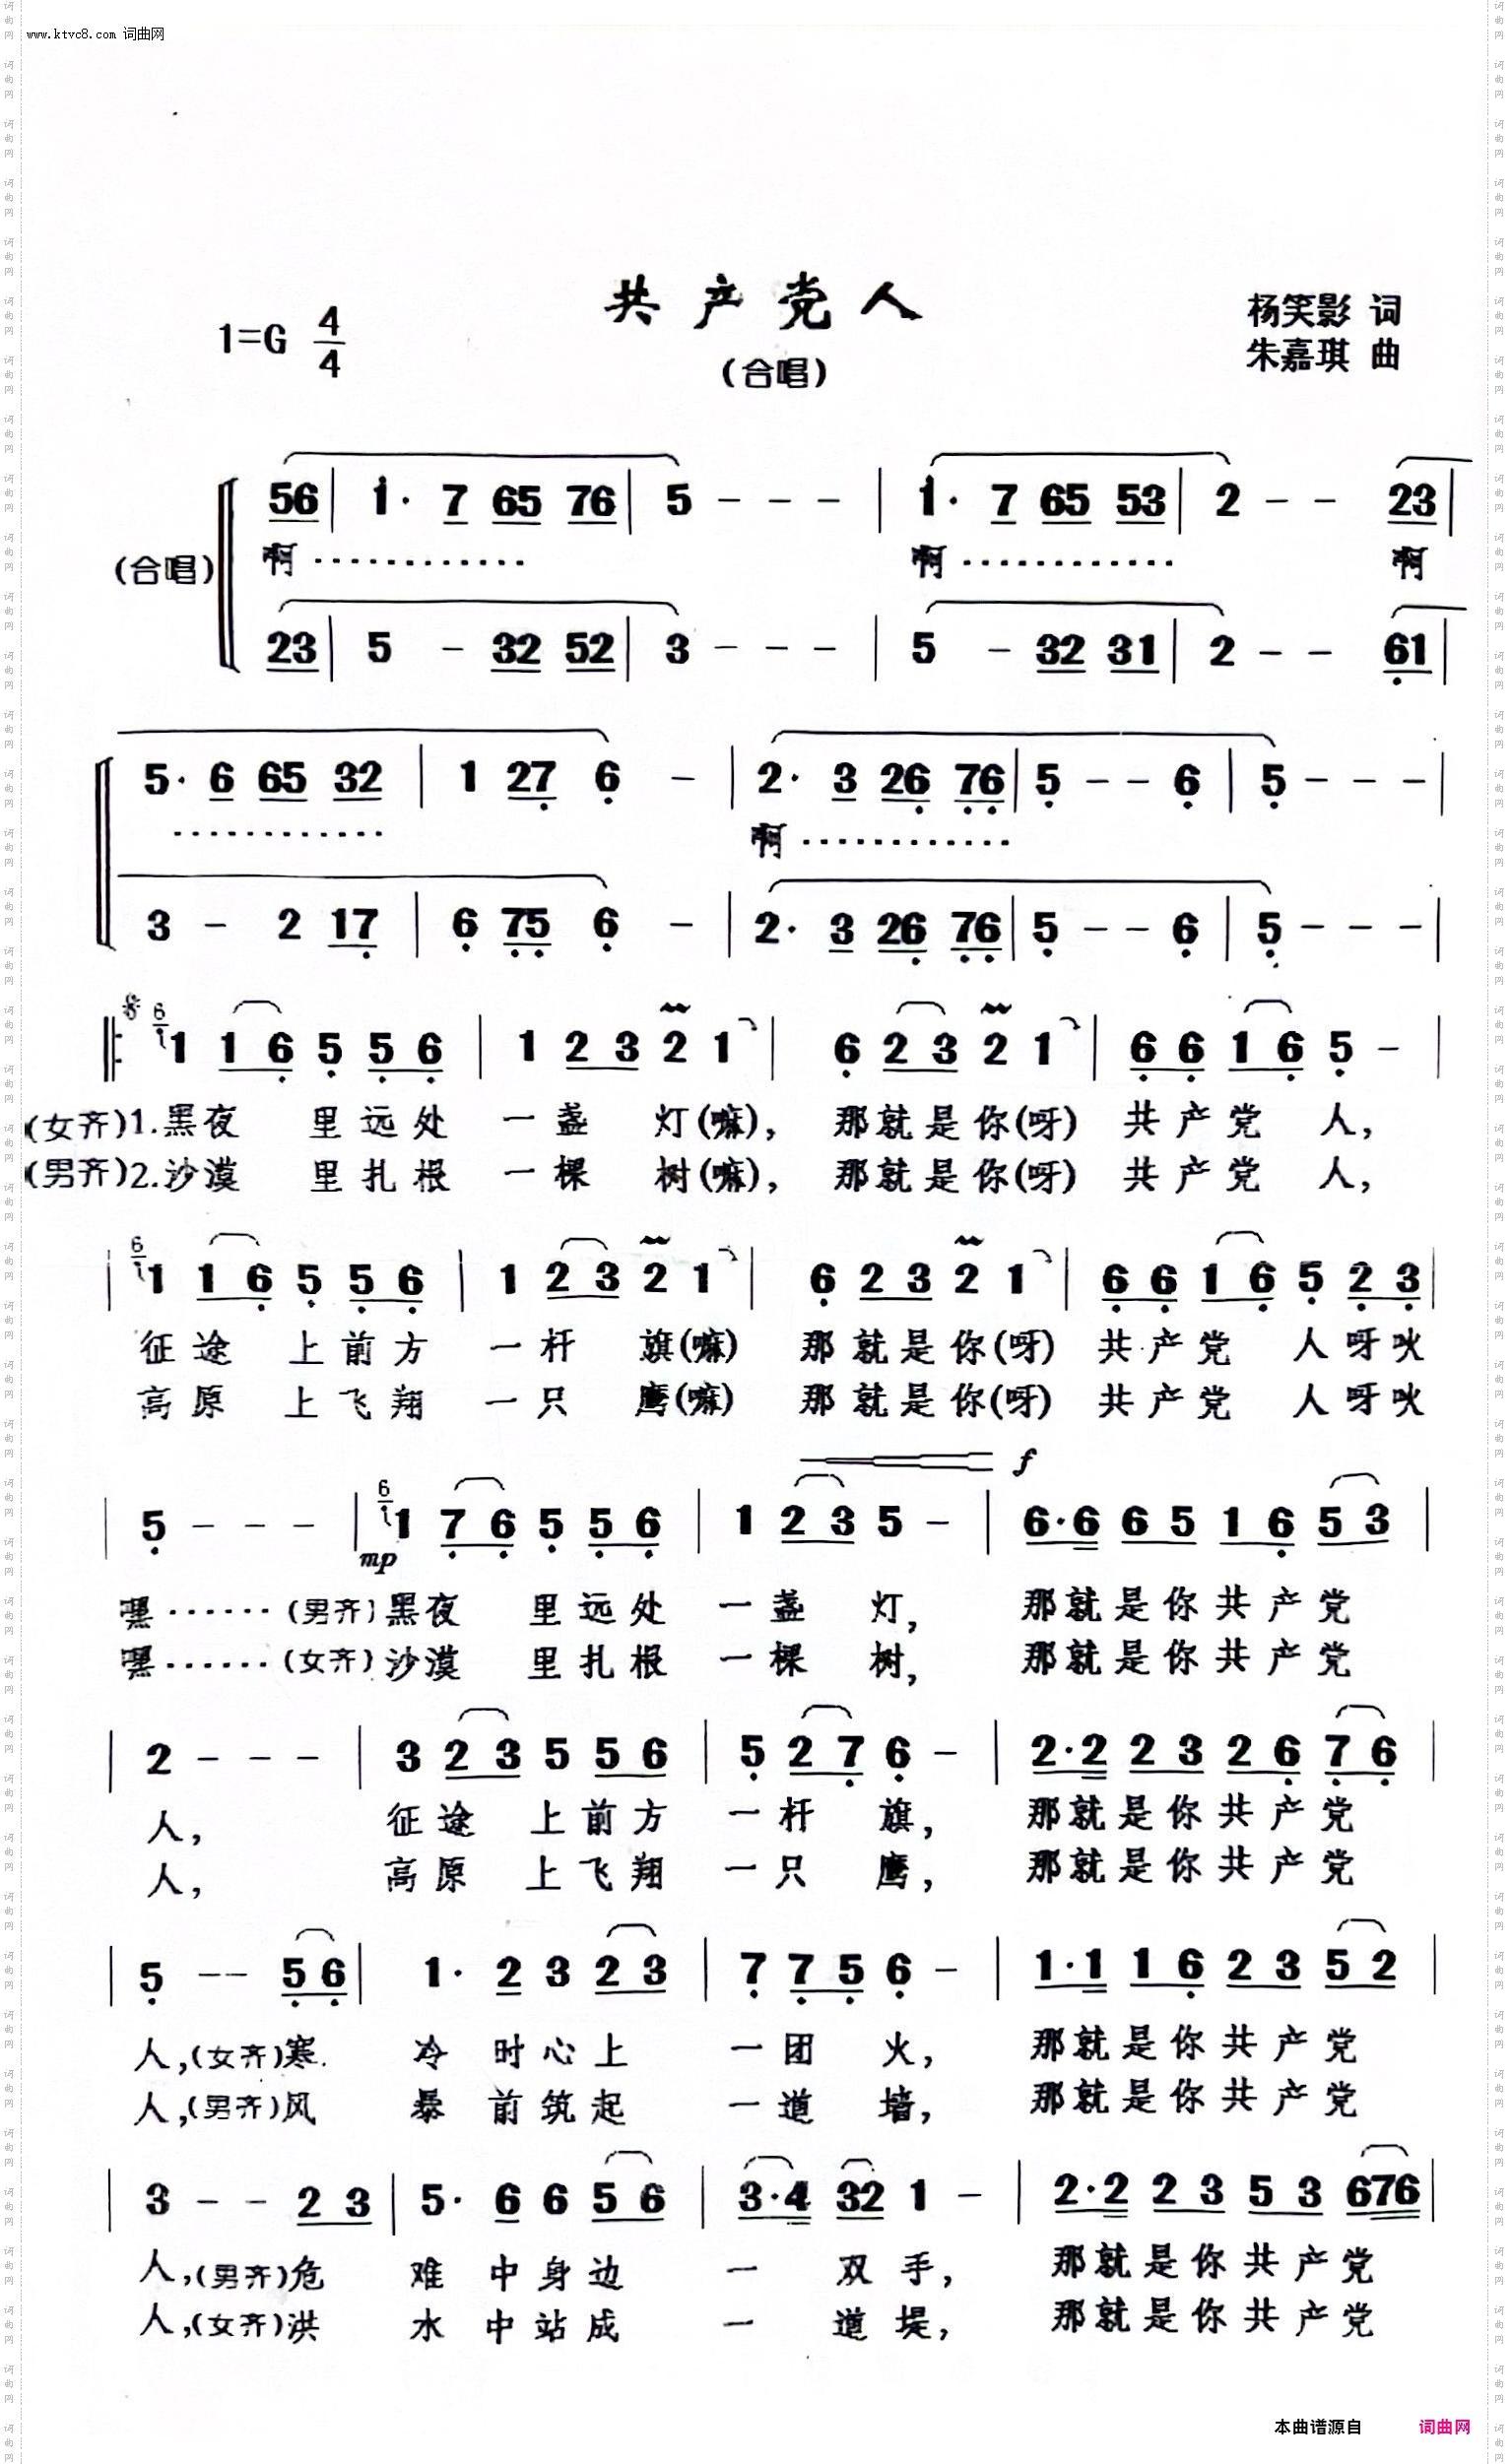 www.ktvc8.com 词曲网
共产党人
1=G 4/4
(合唱)
杨笑影 词
朱嘉琪 曲
56 | 1· 7 65 76 | 5 - - - | 1· 7 65 53 | 2 - - 23 |
(合唱) 啊············ 啊············ 啊
23 | 5 - 32 52 | 3 - - - | 5 - 32 31 | 2 - - 61 |
5· 6 65 32 | 1 27 6 - | 2· 3 26 76 | 5 - - 6 | 5 - - - |
············ 啊············
3 - 2 17 | 6 75 6 - | 2· 3 26 76 | 5 - - 6 | 5 - - - |
6 1 1 1 6 5 5 6 | 1 2 3 2 1 | 6 2 3 2 1 | 6 6 1 6 5 - |
(女齐)1.黑夜 里远处 一盏 灯(嘛), 那就是你(呀) 共产党 人,
(男齐)2.沙漠 里扎根 一棵 树(嘛), 那就是你(呀) 共产党 人,
| 6 1 1 1 6 5 5 6 | 1 2 3 2 1 | 6 2 3 2 1 | 6 6 1 6 5 2 3 |
征途 上前方 一杆 旗(嘛) 那就是你(呀) 共产党 人呀吙
高原 上飞翔 一只 鹰(嘛) 那就是你(呀) 共产党 人呀吙
f
| 5 - - - | 6 1 1 7 6 5 5 6 | 1 2 3 5 - | 6·6 6 5 1 6 5 3 |
mp
嘿······ (男齐)黑夜 里远处 一盏 灯, 那就是你共产党
嘿······ (女齐)沙漠 里扎根 一棵 树, 那就是你共产党
| 2 - - - | 3 2 3 5 5 6 | 5 2 7 6 - | 2·2 2 3 2 6 7 6 |
人, 征途 上前方 一杆 旗, 那就是你共产党
人, 高原 上飞翔 一只 鹰, 那就是你共产党
| 5 - - 5 6 | 1· 2 3 2 3 | 7 7 5 6 - | 1·1 1 6 2 3 5 2 |
人,(女齐)寒 冷 时心上 一团 火, 那就是你共产党
人,(男齐)风 暴 前筑起 一道 墙, 那就是你共产党
| 3 - - 2 3 | 5· 6 6 5 6 | 3·4 32 1 - | 2·2 2 3 5 3 676 |
人,(男齐)危 难 中身边 一 双手, 那就是你共产党
人,(女齐)洪 水 中站成 一 道堤, 那就是你共产党
本曲谱源自 词曲网